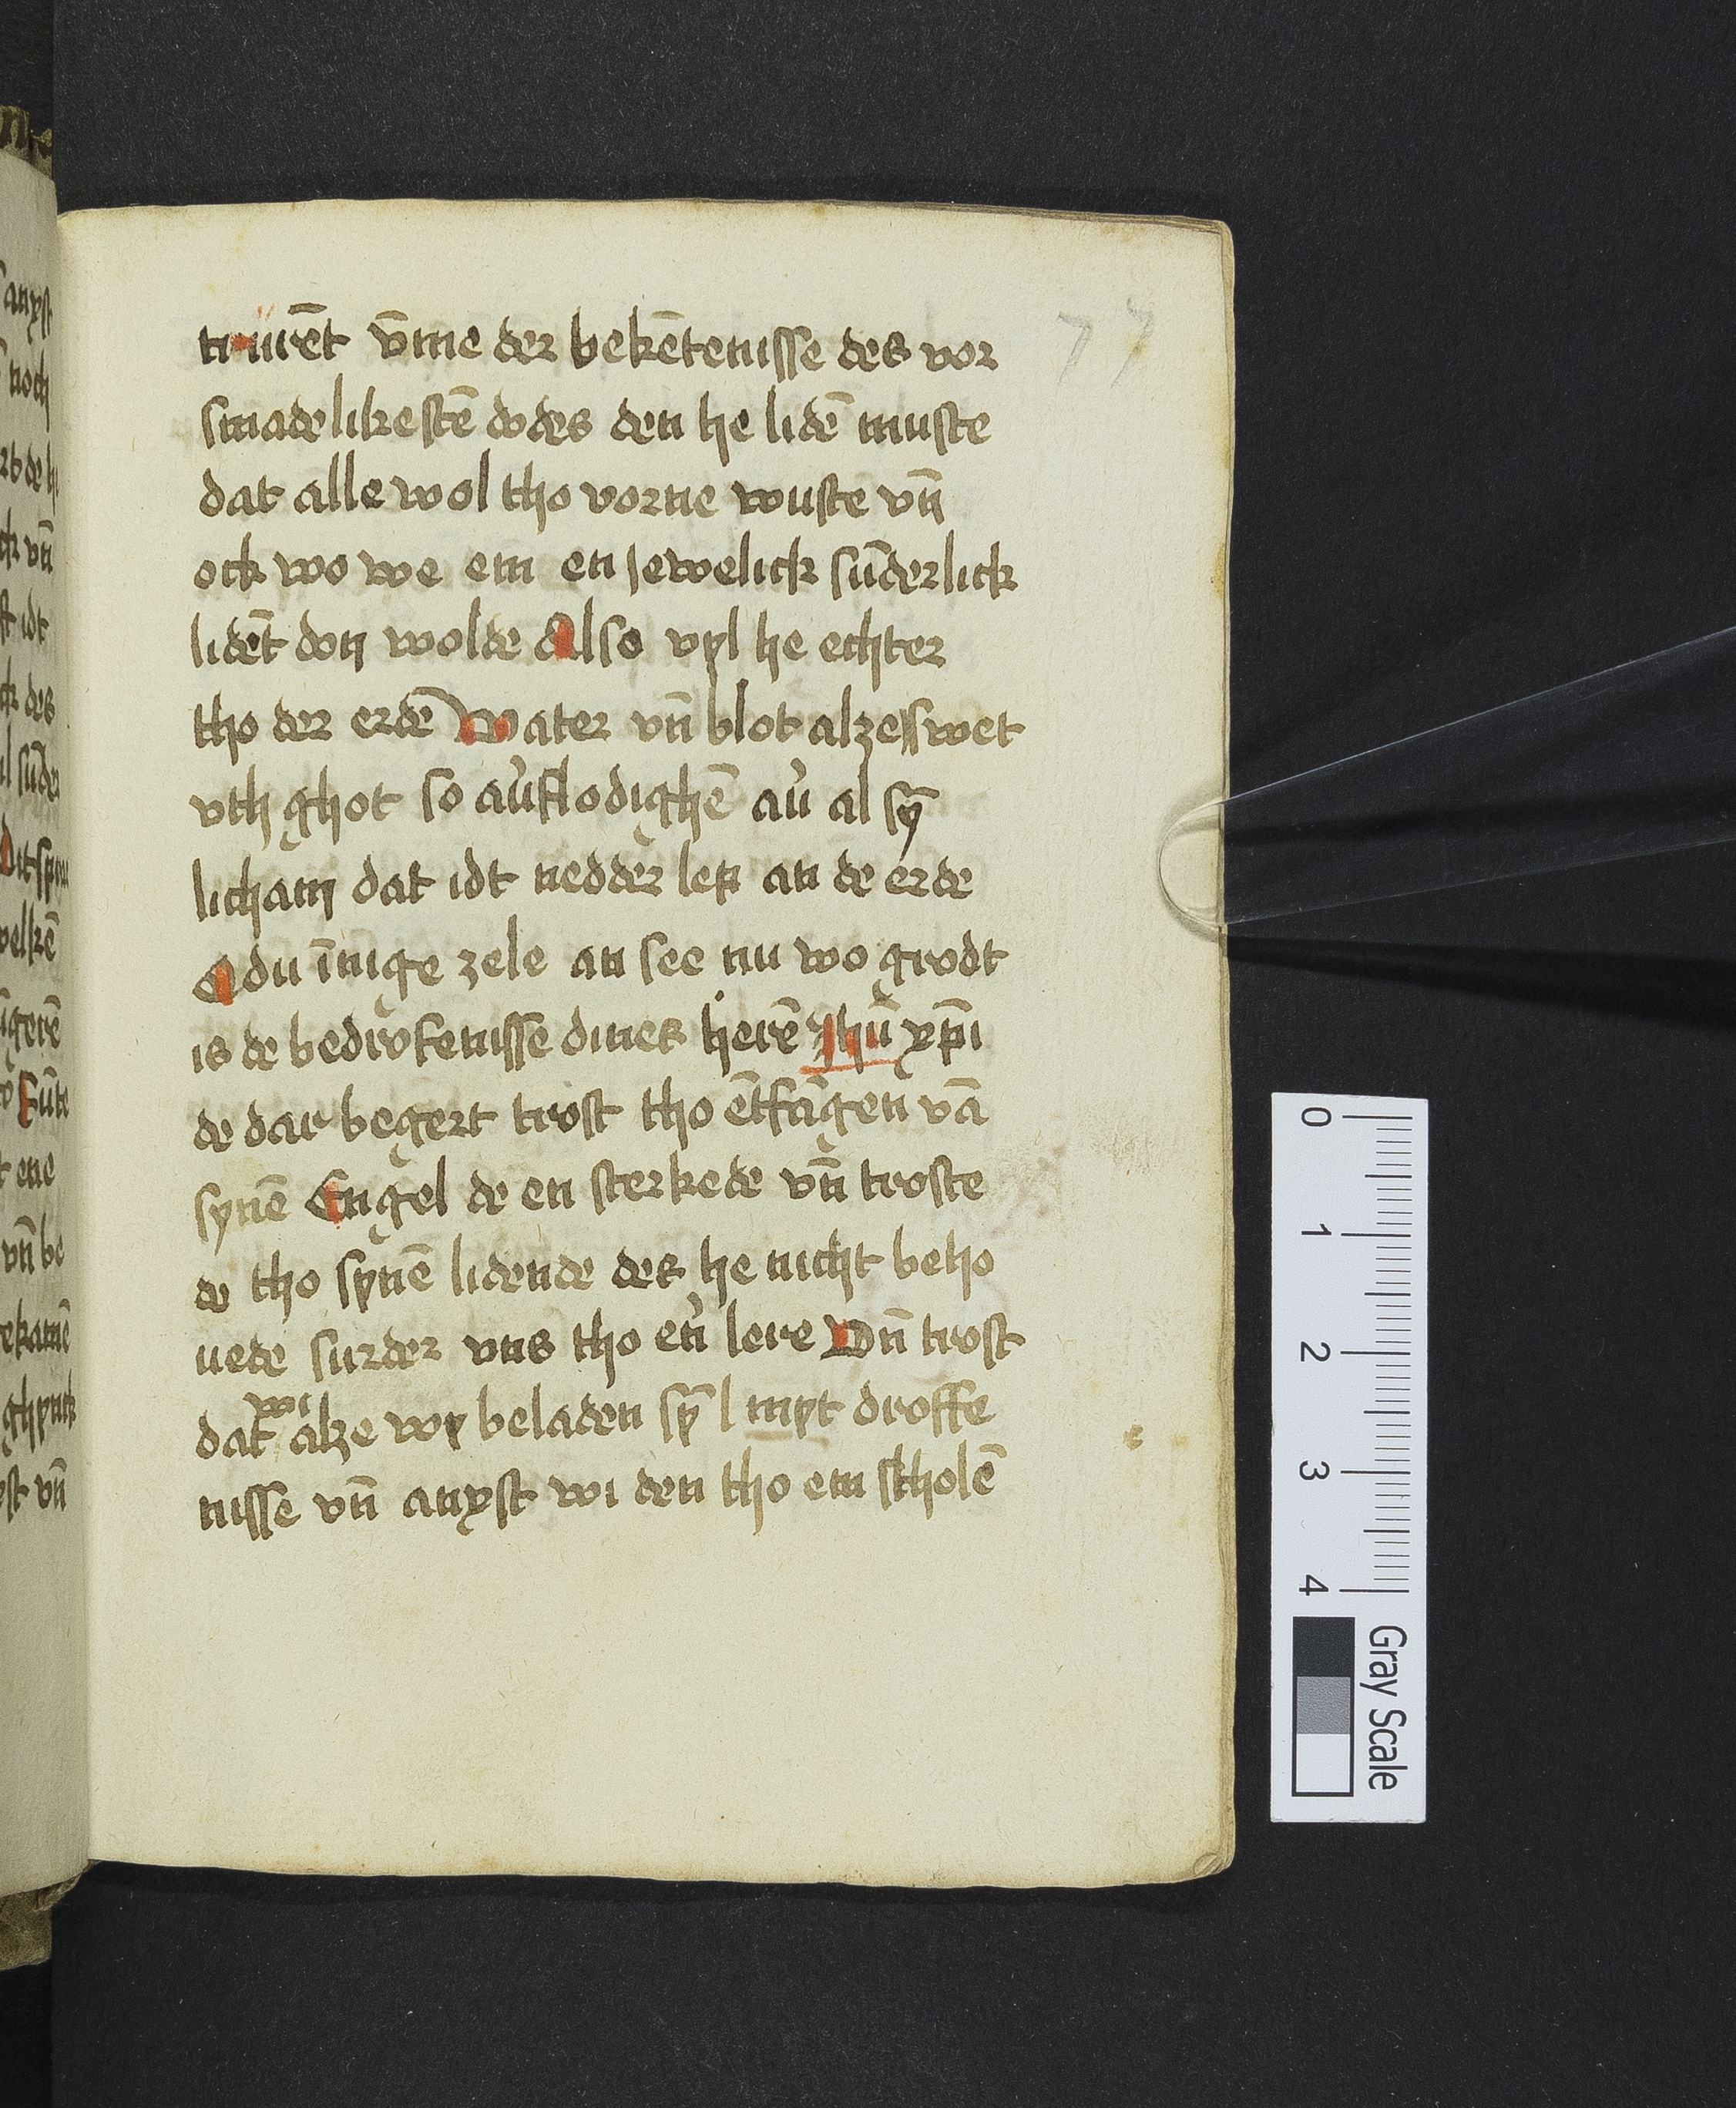 77
truret vm̄e der bekētenisse des vor
smadelikestē dodes den he lidē muste
dat alle wol tho vorne wuste vn̄
ock wo we em en jewelick sūderlick
lidēt don wolde Also vyl he echter
tho der erdē Water vn̄ blot alze swet
vth ghot so auͤflodighē auͤ al sȳ
licham dat idt nedder lep an de erde
O du īnige zele an see nu wo grodt
is de bedrofenisse dines herē Jhū xp̄i
de dar begert trost tho ētfāgen vā
synē Engel de en sterkede vn̄ troste
de tho synē lidende des he nicht beho
uede surder vns tho en̄ lere Vn̄ trost
wi
dat alze wy beladen sȳ myt droffe
nisse vn̄ anxst wi den tho em scholē
anxst
noch
vn̄
idt
des
sūder
Dit
welkē
ene
vn̄ be
vn̄
0
1
2
3
4
Gray Scale